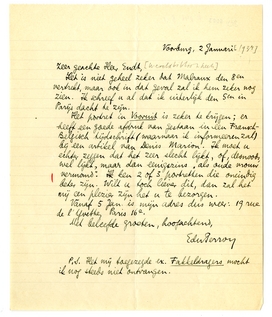 Voorburg, 2 Januari '[1939]
Zeer geachte Heer Endt,
Het is niet geheel zeker dat Malraux den 8en
vertrekt, maar ook in dat geval zal ik hem zeker nog
zien. Ik schreef u al dat ik uiterlijk den 5en in
Parijs dacht te zijn.
Het portret in Vooruit is zeker te krijgen; er
heeft een goede afdruk van gestaan in een Fransch-
Belgisch tijdschrift (waarnaar ik informeeren zal)
bij een artikel van Denis Marion. Ik moet u
echter zeggen dat het zeer slecht lijkt, of, desnoods,
wel lijkt, maar dan eenigszins "als oude vrouw
vermomd". Ik ken 2 of 3 portretten die oneindig
beter zijn. Wilt u ook liever dat, dan zal het
mij een plezier zijn het u te bezorgen.
Vanaf 5 Jan. is mijn adres dus weer: 19 rue
de l'Yvette, Paris 16e.
Met beleefde groeten, hoogachtend,
EduPerron
P.S. Het mij toegezegde ex. Fakkeldragers mocht
ik nog steeds niet ontvangen.